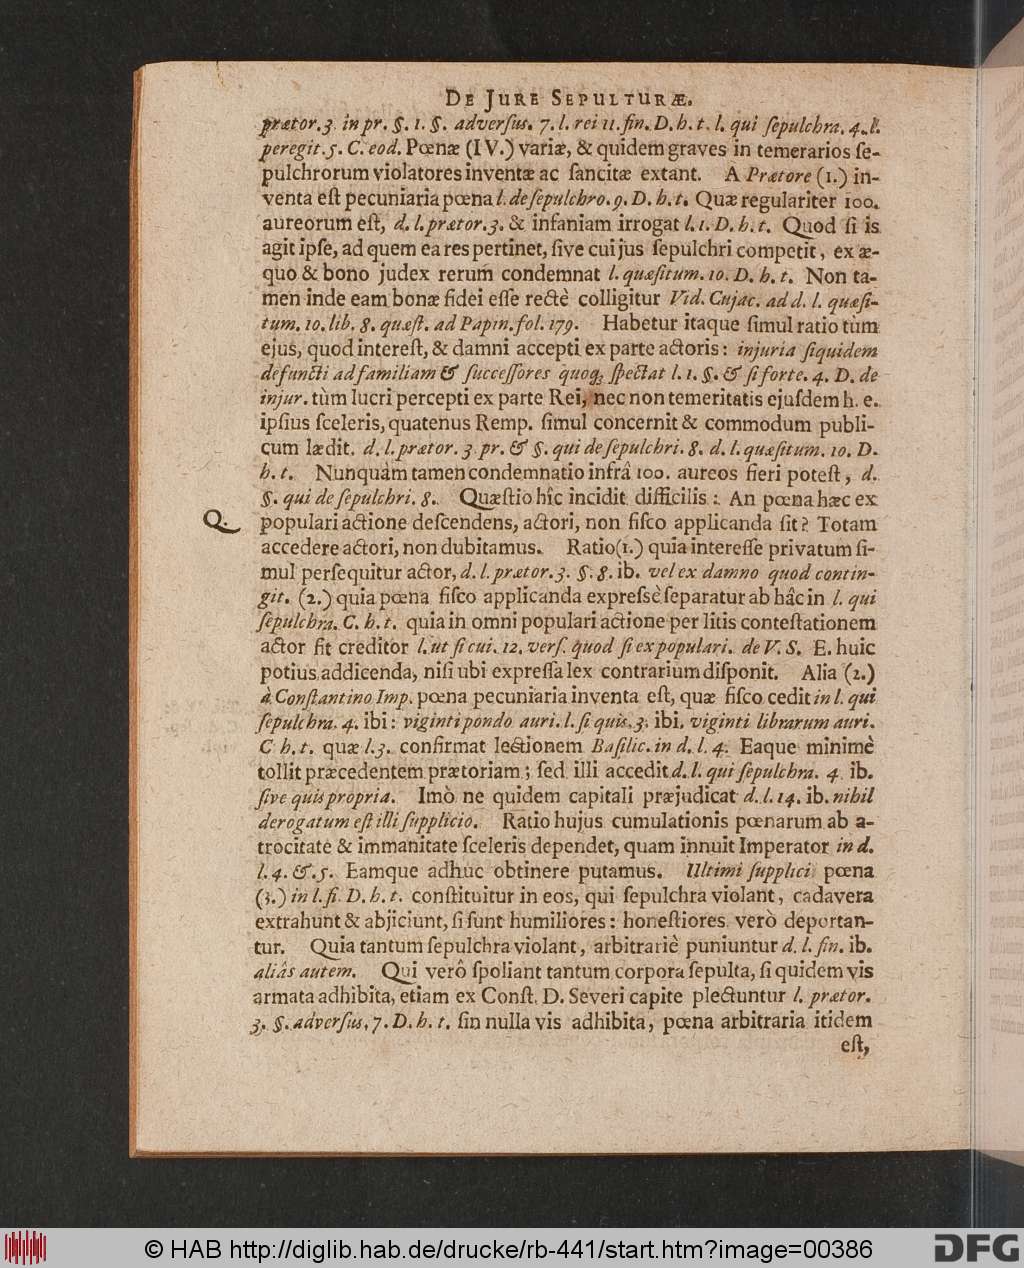 De Jure Sepulturæ.
prætor. 3. in pr. §. 1. §. adverſus. 7. l. rei 11. fin. D. h. t. l. qui ſepulchra. 4. l.
peregit. 5. C. eod. Pœnæ (IV.) variæ, & quidem graves in temerarios ſe-
pulchrorum violatores inventæ ac ſancitæ extant. A Prætore (1.) in-
venta eſt pecuniaria pœna l. de ſepulchro. 9. D. h. t. Quæ regulariter 100.
aureorum eſt, d. l. prætor. 3. & infaniam irrogat l. 1. D. h. t. Quod ſi is
agit ipſe, ad quem ea res pertinet, ſive cui jus ſepulchri competit, ex æ-
quo & bono judex rerum condemnat l. quæſitum. 10. D. h. t. Non ta-
men inde eam bonæ fidei eſſe rectè colligitur Vid. Cujac. ad d. l. quæſi-
tum. 10. lib. 8. quæſt. ad Papin. fol. 179. Habetur itaque ſimul ratio tùm
ejus, quod intereſt, & damni accepti ex parte actoris: injuria ſiquidem
defuncti ad familiam & ſucceſſores quoq; ſpectat l. 1. §. & ſi forte. 4. D. de
injur. tùm lucri percepti ex parte Rei, nec non temeritatis ejuſdem h. e.
ipſius ſceleris, quatenus Remp. ſimul concernit & commodum publi-
cum lædit. d. l. prætor. 3. pr. & §. qui de ſepulchri. 8. d. l. quæſitum. 10. D.
h. t. Nunquàm tamen condemnatio infrâ 100. aureos fieri poteſt, d.
§. qui de ſepulchri. 8. Quæſtio hîc incidit difficilis: An pœna hæc ex
Q. populari actione deſcendens, actori, non fiſco applicanda ſit? Totam
accedere actori, non dubitamus. Ratio (1.) quia intereſſe privatum ſi-
mul perſequitur actor, d. l. prætor. 3. §. 8. ib. vel ex damno quod contin-
git. (2.) quia pœna fiſco applicanda expreſsè ſeparatur ab hâc in l. qui
ſepulchra. C. h. t. quia in omni populari actione per litis conteſtationem
actor fit creditor l. ut ſi cui. 12. verſ. quod ſi ex populari. de V. S. E. huic
potius addicenda, niſi ubi expreſſa lex contrarium diſponit. Alia (2.)
à Conſtantino Imp. pœna pecuniaria inventa eſt, quæ fiſco cedit in l. qui
ſepulchra. 4. ibi: viginti pondo auri. l. ſi quis. 3. ibi. viginti librarum auri.
C h. t. quæ l. 3. confirmat lectionem Baſilic. in d. l. 4. Eaque minimè
tollit præcedentem prætoriam; ſed illi accedit d. l. qui ſepulchra. 4 ib.
ſive quis propria. Imò ne quidem capitali præjudicat d. l. 14. ib. nihil
derogatum eſt illi ſupplicio. Ratio hujus cumulationis pœnarum ab a-
trocitate & immanitate ſceleris dependet, quam innuit Imperator in d.
l. 4. &. 5. Eamque adhuc obtinere putamus. Ultimi ſupplici pœna
(3.) in l. fi. D. h. t. conſtituitur in eos, qui ſepulchra violant, cadavera
extrahunt & abjiciunt, ſi ſunt humiliores: honeſtiores verò deportan-
tur. Quia tantum ſepulchra violant, arbitrariè puniuntur d. l. fin. ib.
aliâs autem. Qui verô ſpoliant tantum corpora ſepulta, ſi quidem vis
armata adhibita, etiam ex Conſt. D. Severi capite plectuntur l. prætor.
3. §. adverſus. 7. D. h. t. ſin nulla vis adhibita, pœna arbitraria itidem
eſt,
© HAB http://diglib.hab.de/drucke/rb-441/start.htm?image=00386
DFG